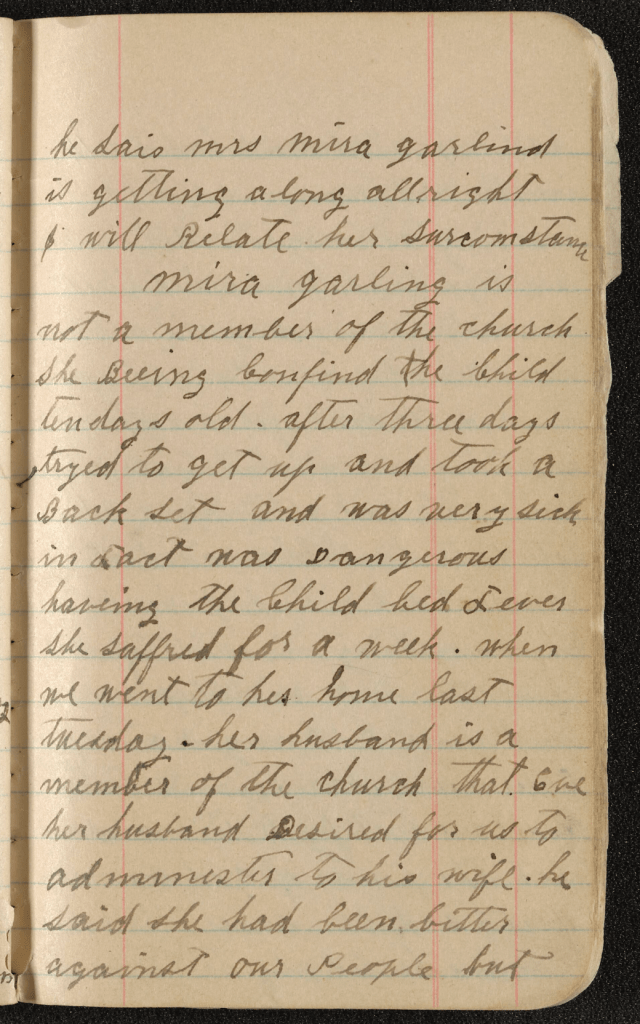 he sais mrs mira garlind
is getting along allright
I will Relate her surcomstance
mira garling is
not a member of the church
she Beeing Confind the Child
ten days old. after three days
tryed to get up and took a
Back set and was very sick
in fact was Dangerous
haveing the Child bed fever
she saffred for a week. when
we went to his home last
tuesday. her husband is a
member of the church that Eve
her husband Desired for us to
adminester to his wife. he
said she had been bitter
against our People but